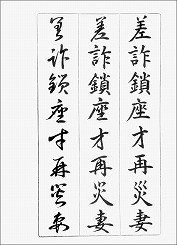 差詐鎖座才再災妻
差詐鎖座才再災妻
差詐鎖座才再災妻